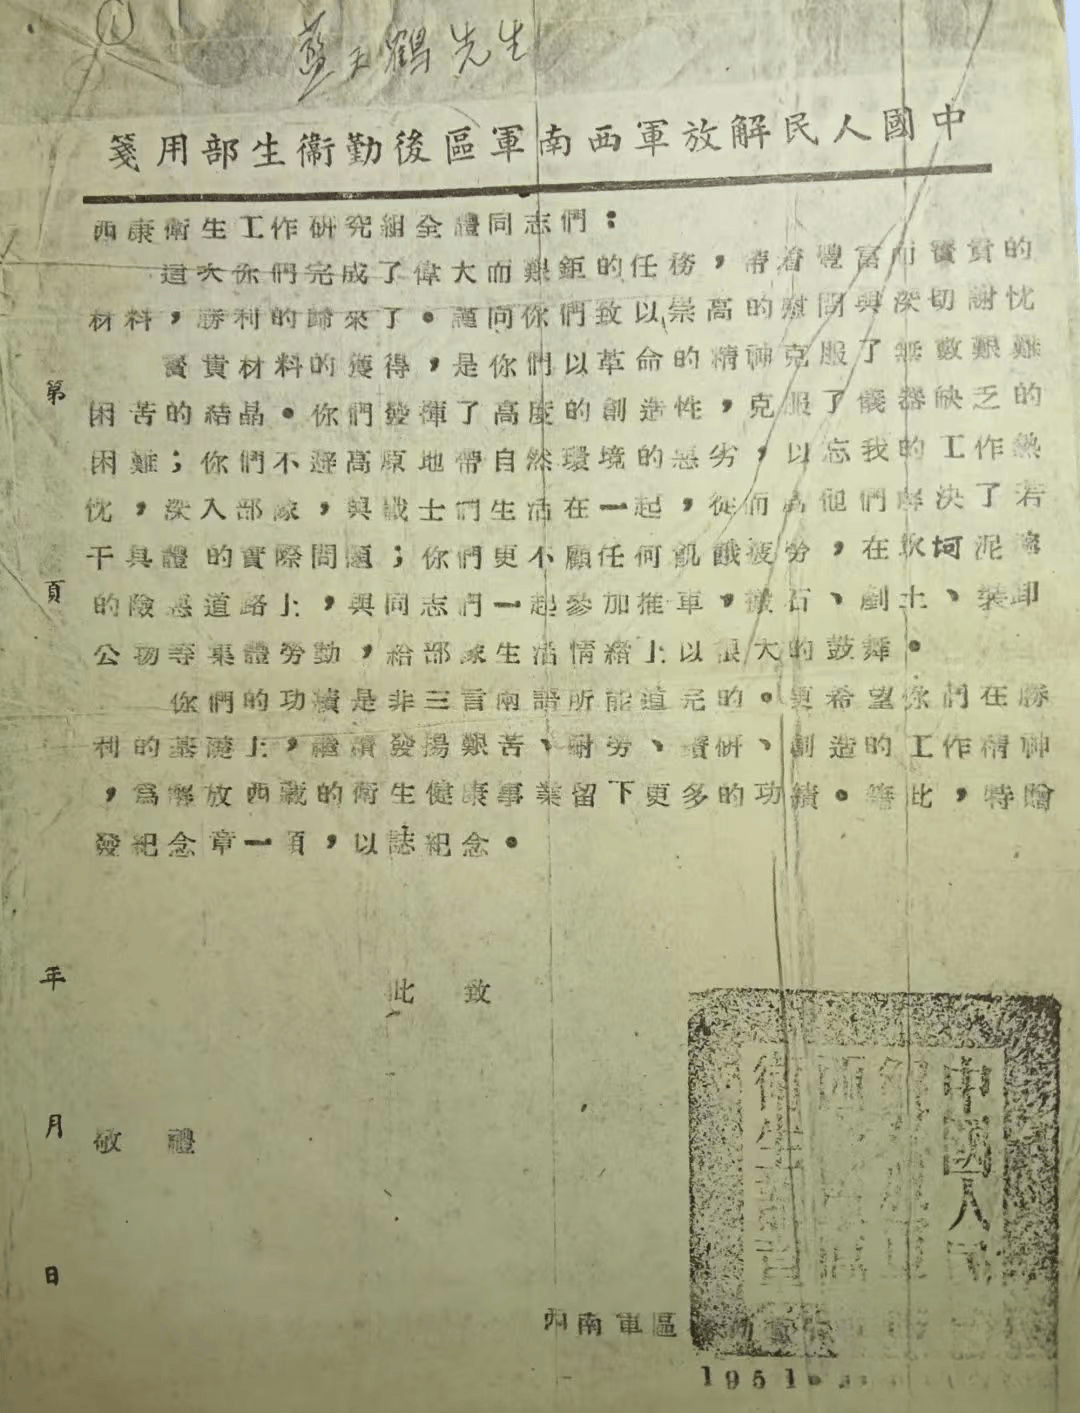 藍天鶴先生
中國人民解放軍西南軍區後勤衞生部用箋
西康衛生工作研究組全體同志們：
這次你們完成了偉大而艱鉅的任務，帶着豐富而寶貴的
材料，勝利的歸來了。謹向你們致以崇高的慰問與深切謝忱
寶貴材料的獲得，是你們以革命的精神克服了無數艱難
困苦的結晶。你們發揮了高度的創造性，克服了儀器缺乏的
困難；你們不避高原地帶自然環境的惡劣，以忘我的工作熱
忱，深入部隊，與戰士們生活在一起，從而為他們解決了若
干具體的實際問題；你們更不顧任何飢餓疲勞，在坎坷泥濘
的險惡道路上，與同志們一起參加推車，搬石、剷土、裝卸
公物等集體勞動，給部隊生活情緒上以很大的鼓舞。
你們的功績是非三言兩語所能道完的。更希望你們在勝
利的基礎上，繼續發揚艱苦、耐勞、鑽研、創造的工作精神
，為解放西藏的衛生健康事業留下更多的功績。藉此，特贈
發紀念章一項，以誌紀念。
此致
敬禮
第
頁
年
月
日
中國人民
衛生部
西南軍區
1951.